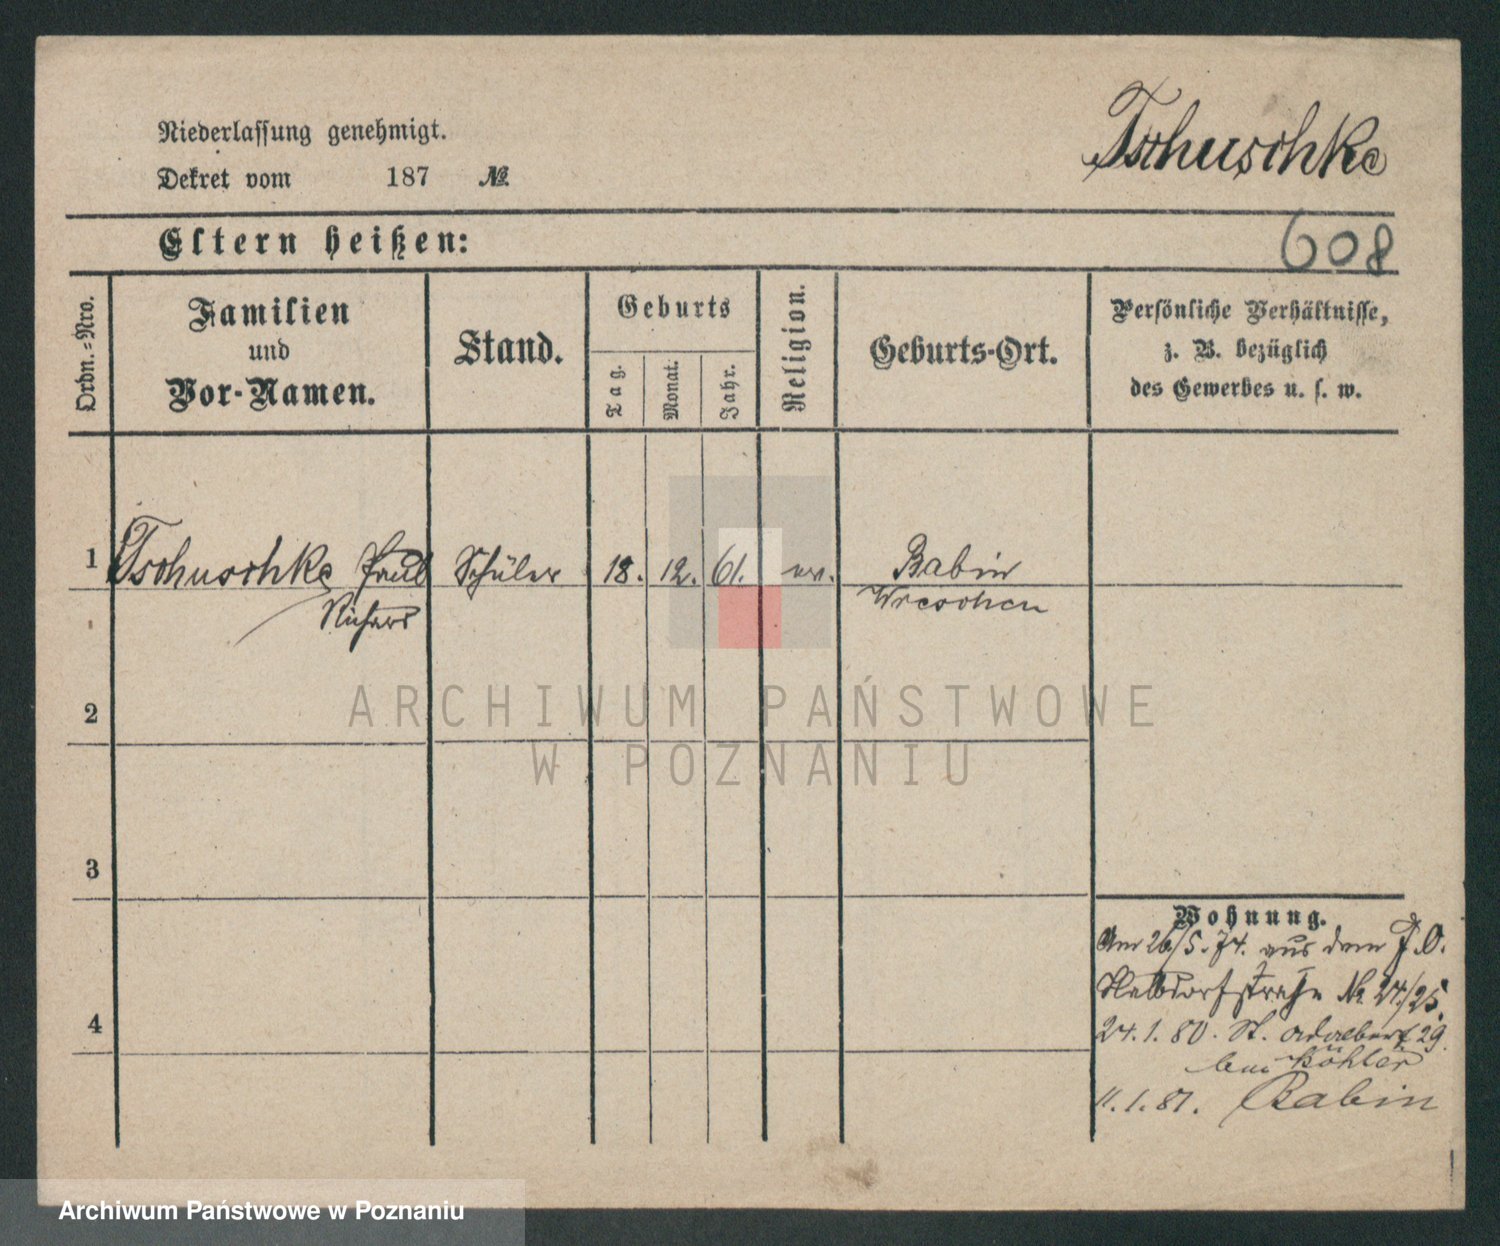 Niederlassung genehmigt.
Dekret vom 187 №
Tschuschke
Eltern heißen:
608
Ordn.-Nro.
Familien
und
Vor-Namen.
Stand.
Geburts
Tag.
Monat.
Jahr.
Religion.
Geburts-Ort.
Persönliche Verhältnisse,
z. B. bezüglich
des Gewerbes u. s. w.
1 Tschuschke Paul Schüler 18. 12. 61. ev. Babin
Richard Wreschen
2
ARCHIWUM PAŃSTWOWE
W POZNANIU
3
Wohnung.
Am 26/5. 74. aus dem J. O.
Halbdorfstraße № 24/25.
4
24. 1. 80. St. Adalbert 29.
bei Köhler
11. 1. 81. Babin
Archiwum Państwowe w Poznaniu